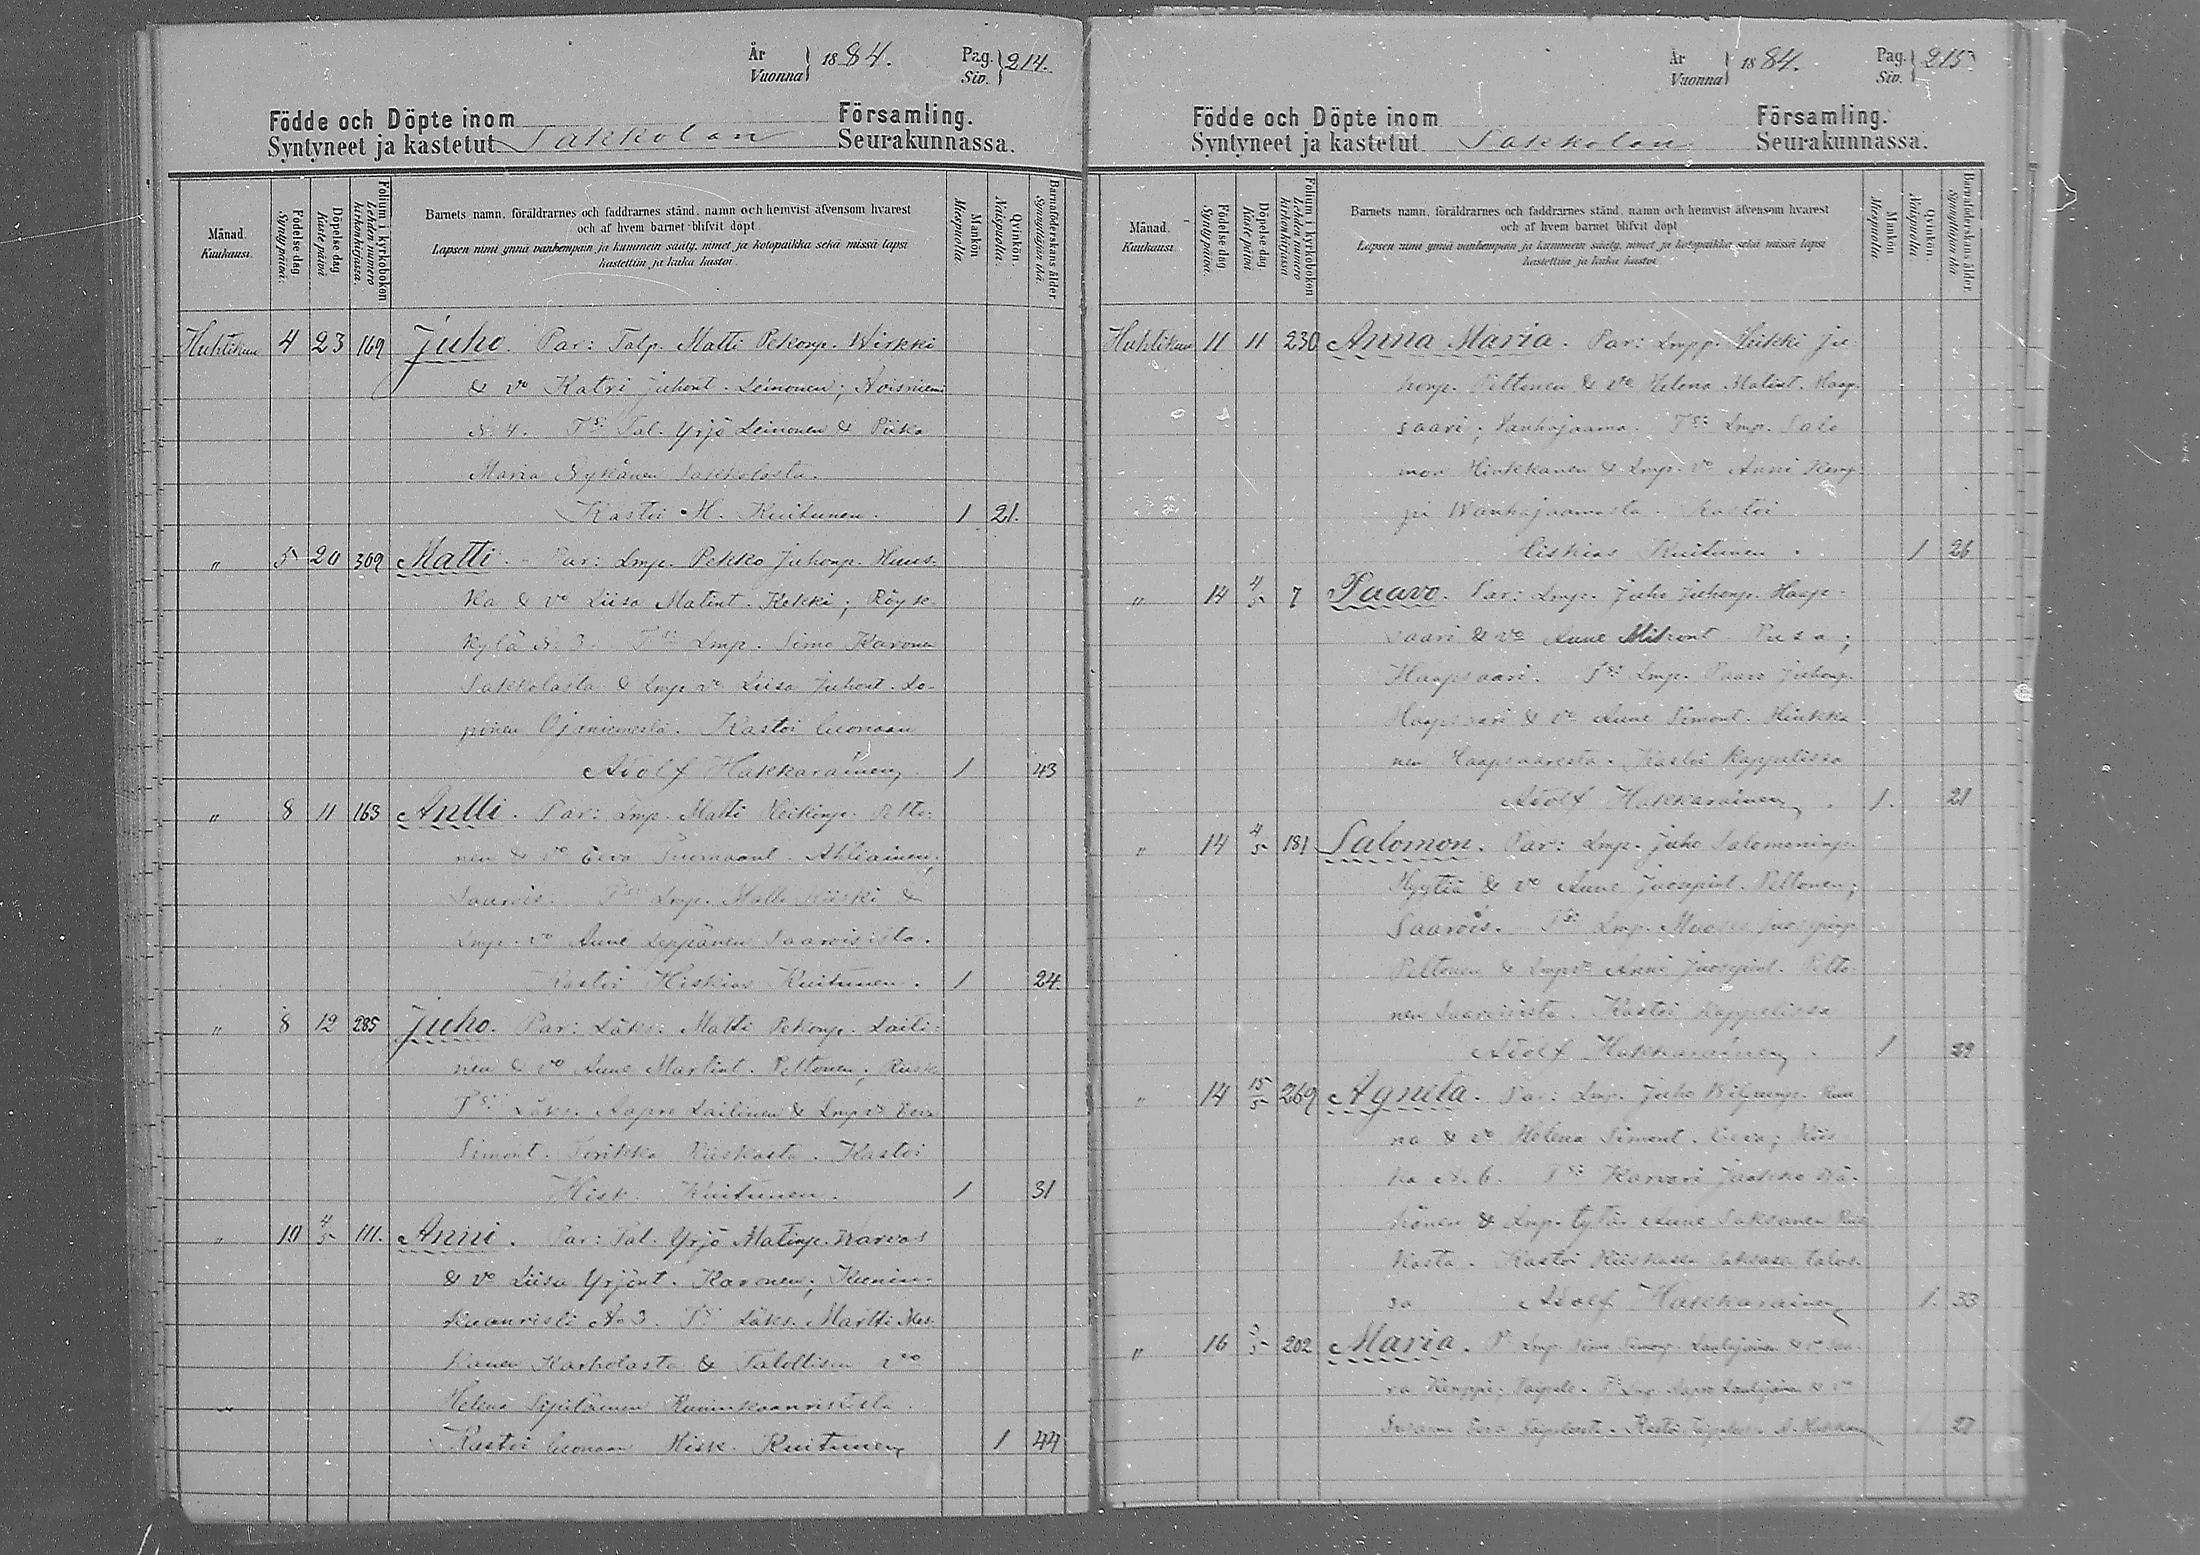 År
Vuonna } 1884. Pag. Siv. } 214.
Födde och Döpte inom Församling.
Syntyneet ja kastetut Sakkolan Seurakunnassa.
Månad. Kuukausi.
Födelse dag Syntypäivä.
Döpelse dag Kaste päivä.
Folium i kyrkoboken Lehden numero kirkonkirjassa.
Barnets namn, föräldrarnes och faddrarnes stånd, namn och hemvist äfvensom hvarest
och af hvem barnet blifvit döpt.
Lapsen nimi ynnä vanhempain ja kummein sääty, nimet ja kotopaikka sekä missä lapsi
kastettiin ja kuka kastoi.
Mankön Miespuolia
Qvinkön. Naispuolia.
Barnaföderskans ålder. Synnyttäjän ikä.
Huhtikuu 4 23 169 Juho. Par: Talp. Matti Pekonp. Wirkki
& vo Katri Juhont. Leinonen; Noisniemi
No 4. Tst: Tal. Yrjö Leinonen & Piika
Maria Rykänen Sakkolasta.
Kastoi H. Kuitunen. 1 21.
" 5 20 309 Matti. - Par: Lmp. Pekko Juhonp. Huus-
ka & vo Liisa Matint. Kekki; Röyk-
kylä No 3. Tst: Lmp. Simo Karonen
Sakkolasta & Lmp vo Liisa Juhont. Lo-
pinen Ojaniemestä. Kastoi luonaan
Adolf Hakkarainen, 1 43
" 8 11 163 Antti. Par: Lmp. Matti Heikinp. Pelto-
nen & vo Eeva Tuomaant. Ahliainen;
Saarois. Tst: Lmp. Matti Kiiski &
Lmp. vo Anne Seppänen Saaroisista.
Kastoi Hiskias Kuitunen. 1 24.
" 8 12 285 Juho. Par: Läks. Matti Pekonp. Laiti-
nen & vo Anne Martint. Peltonen; Riiska
Tst: Läks. Aapro Laitinen & Lmp vo Eeva
Simont. Riiskasta. Kastoi
Hisk. Kuitunen. 1 31
" 10 4/5 111. Anni. Par: Tal. Yrjö Matinp. Karvas
& vo Liisa Yrjönt. Karonen; Kunin-
kaanristi No 3. Tst: Läks. Martti Mes-
kanen Karholasta & Talollisen vo
Helena Sipiläinen Kuninkaanristiltä.
Kastoi luonaan Hisk. Kuitunen, 1 44
År
Vuonna } 1884. Pag. Siv. } 215
Födde och Döpte inom Församling.
Syntyneet ja kastetut Sakkolan Seurakunnassa.
Månad. Kuukausi
Födelse dag Syntypäivä.
Döpelse dag Kaste päivä.
Folium i kyrkoboken Lehden numero kirkonkirjassa
Barnets namn, föräldrarnes och faddrarnes stånd, namn och hemvist äfvensom hvarest
och af hvem barnet blifvit döpt
Lapsen nimi ynnä vanhempain ja kummein sääty, nimet ja kotopaikka sekä missä lapsi
kastettiin ja kuka kastoi
Mankön Miespuolia
Qvinkön. Naispuolia
Barnaföderskans ålder. Synnyttäjän ikä
Huhtikuu 11 11 230 Anna Maria. Par: Lmpp. Heikki Ju-
honp. Peltonen & vo Helena Matint. Haap-
saari; Vanhajaama. Tst: Lmp. Salo
mon Hinkkanen & Lmp. vo Anni Kemp-
pi Wanhajaamasta. Kastoi
Hiskias Kuitunen. 1 26
" 14 4/5 7 Paavo. Par: Lmp. Juho Juhonp. Haap-
saari & vo Anne Mikont Pusa;
Haapsaari. Tst: Lmp. Paavo Juhonp.
Haapsaari & vo Anne Simont. Hinkka
nen Haapsaaresta. Kastoi Kappelissa
Adolf Hakkarainen, 1. 21
" 14 4/5 181 Salomon. Par: Lmp. Juho Salomoninp.
Hyytiä & vo Anne Juosepint. Peltonen;
Saarois. Tst: Lmp. Mooses Juosepinp.
Peltonen & Lmp vo Anni Juosepint. Pelto-
nen Saaroisista. Kastoi Kappelissa
Adolf Hakkarainen. 1 29
" 14 15/5 269 Agneta. Par: Lmp. Juho Wilpunp. Kuu
na & vo Helena Simont. Eeva; Riis
ka No 6. Tst: Karvari Jaakko Rä-
sönen & Lmp. tytär Anne Saksanen Riis
kasta. Kastoi Riiskassa Saksasen talos-
sa Adolf Hakkarainen 1. 33
" 16 3/5 202 Maria. P. Lmp Simo Simonp. Laulajainen & vo
Kemppi; Taipale. Tst: Lmp. Aapro Laulajainen & vo
Eeva Taipaleesta. Kastoi A. Hakkarainen 27